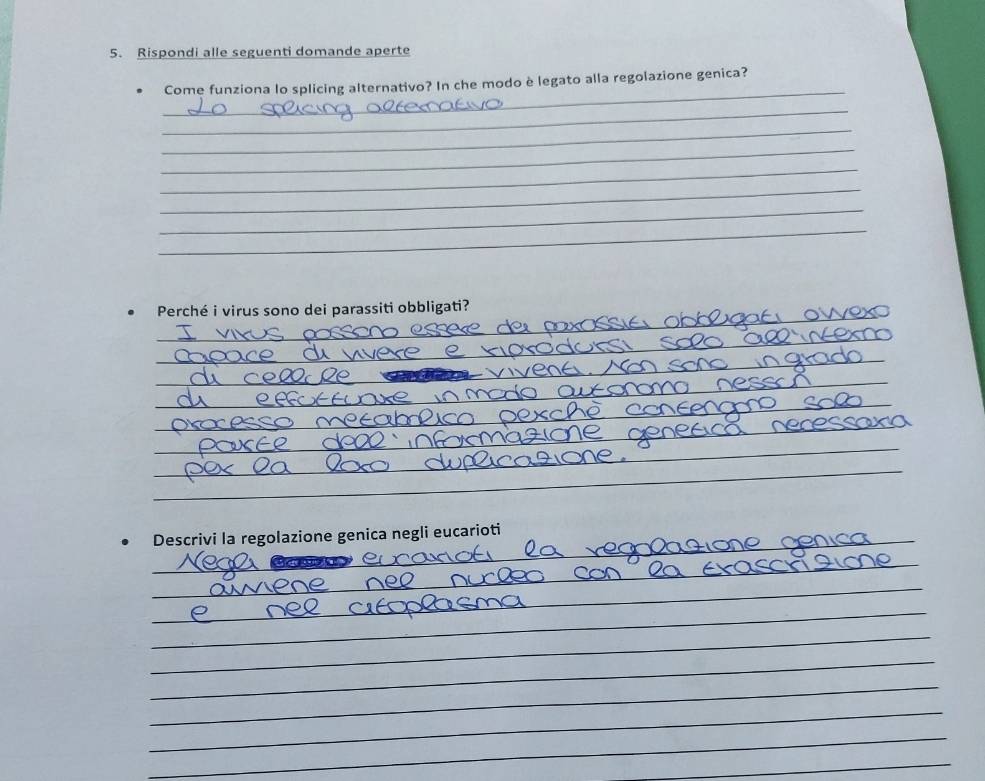 5. Rispondi alle seguenti domande aperte
• Come funziona lo splicing alternativo? In che modo è legato alla regolazione genica?
Lo splicing alternativo
• Perché i virus sono dei parassiti obbligati?
I virus possono essere dei parassiti obbligati ovvero
capace di vivere e riprodursi solo all'interno
di cellule viventi. Non sono in grado
di effettuare in modo autonomo nessun
processo metabolico perchè contengono solo
parte dell'informazione genetica necessaria
per la loro duplicazione.
• Descrivi la regolazione genica negli eucarioti
Negli eucarioti la regolazione genica
avviene nel nucleo con la trascrizione
e nel citoplasma